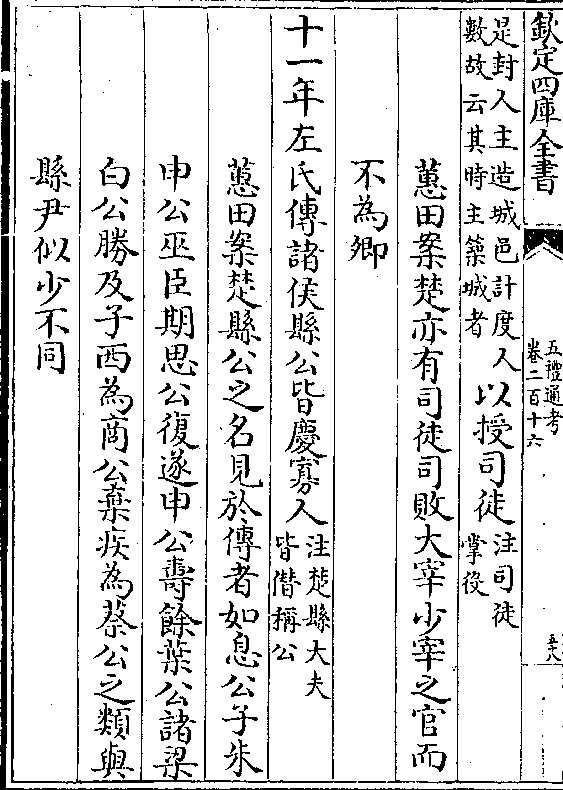 欽定四庫全書
五禮通考
卷二百十六
五八
是封人主造城邑計度人
數故云其時主築城者
以授司徒
注司徒
掌役
蕙田案楚亦有司徒司敗大宰少宰之官而
不為卿
十一年左氏傳諸侯縣公皆慶寡人
注楚縣大夫
皆僭稱公
蕙田案楚縣公之名見於傳者如息公子朱
申公巫臣期思公復遂申公壽餘葉公諸梁
白公勝及子西為商公棄疾為蔡公之類與
縣尹似少不同